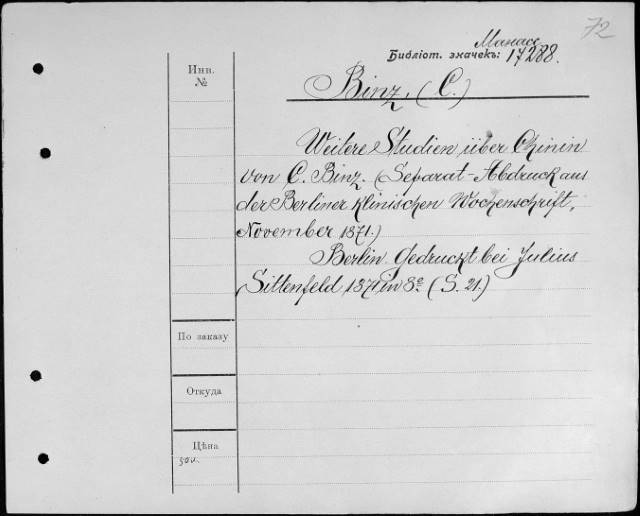 72
Манасс.
Библіот. значекъ: 17288.
Инв.
№
Binz, (C.)
Weitere Studien über Chinin
von C. Binz. (Separat-Abdruck aus
der Berliner klinischen Wochenschrift,
November 1871.)
Berlin. Gedruckt bei Julius
Sittenfeld 1871 in 8º (S. 21.)
По заказу
Откуда
Цѣна